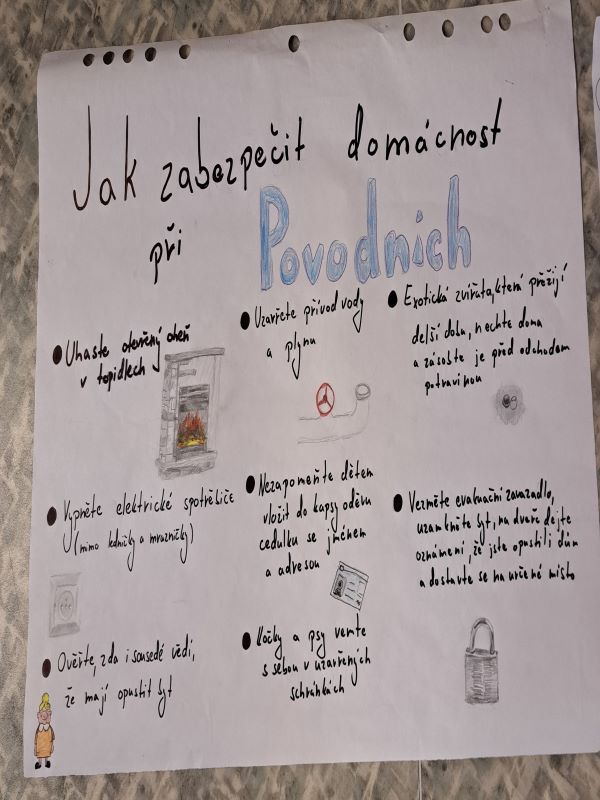 Jak zabezpečit domácnost
při Povodních
● Uhaste otevřený oheň
v topidlech
● Vypněte elektrické spotřebiče
(mimo ledničky a mrazničky)
● Ověřte, zda i sousedé vědí,
že mají opustit byt
● Uzavřete přívod vody
a plynu
● Nezapomeňte dětem
vložit do kapsy oděvu
cedulku se jménem
a adresou
● Kočky a psy vemte
s sebou v uzavřených
schránkách
● Exotická zvířata, která přežijí
delší dobu, nechte doma
a zásobte je před odchodem
potravinou
● Vezměte evakuační zavazadlo,
uzamkněte byt, na dveře dejte
oznámení, že jste opustili dům
a dostavte se na určené místo